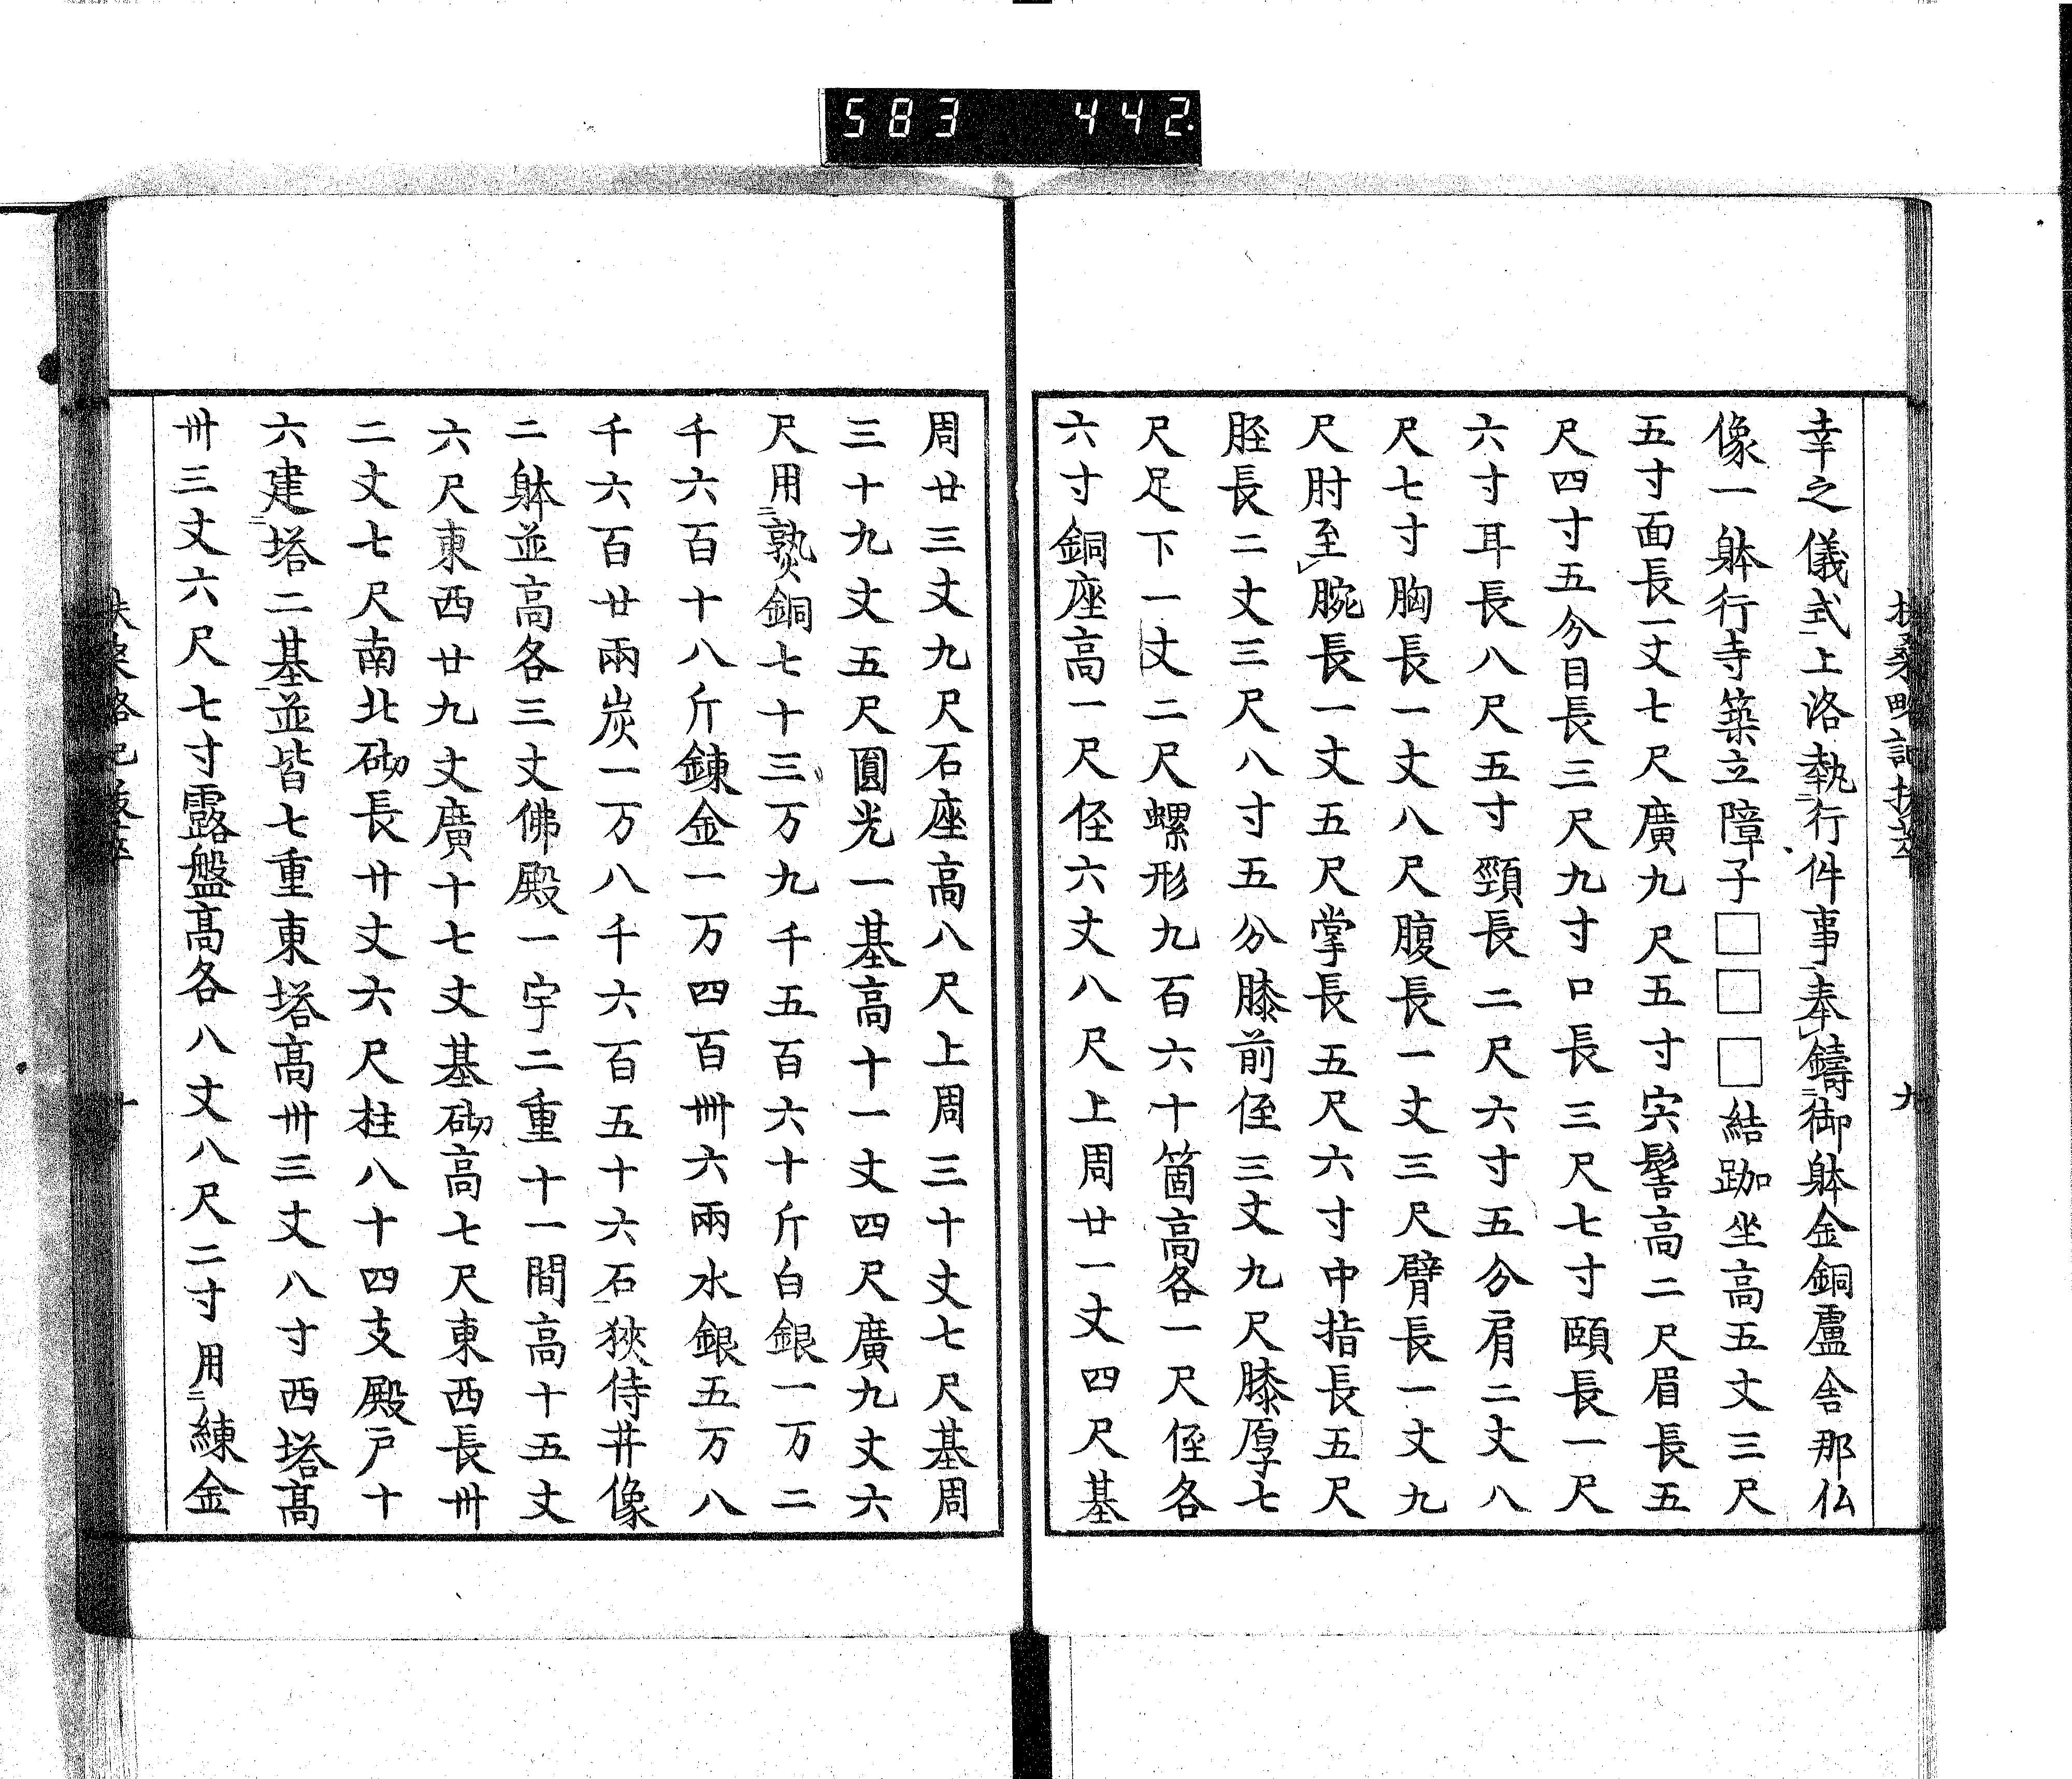 583 442.
扶桑略記抜萃
九
幸之儀式上洛執行件事奉鑄御躰金銅盧舎那仏
像一躰行寺築立障子□□□結跏坐高五丈三尺
五寸面長一丈七尺廣九尺五寸宍髻高二尺眉長五
尺四寸五分目長三尺九寸口長三尺七寸頤長一尺
六寸耳長八尺五寸頸長二尺六寸五分肩二丈八
尺七寸胸長一丈八尺腹長一丈三尺臂長一丈九
尺肘至腕長一丈五尺掌長五尺六寸中指長五尺
胫長二丈三尺八寸五分膝前侄三丈九尺膝厚七
尺足下一丈二尺螺形九百六十箇高各一尺侄各
六寸銅座高一尺侄六丈八尺上周廿一丈四尺基
周廿三丈九尺石座高八尺上周三十丈七尺基周
三十九丈五尺圓光一基高十一丈四尺廣九丈六
尺用熟銅七十三万九千五百六十斤白銀一万二
千六百十八斤錬金一万四百卌六兩水銀五万八
千六百廿兩炭一万八千六百五十六石狹侍井像
二躰並高各三丈佛殿一宇二重十一間高十五丈
六尺東西廿九丈廣十七丈基砌高七尺東西長卅
二丈七尺南北砌長廿丈六尺柱八十四支殿戸十
六建塔二基並皆七重東塔高卅三丈八寸西塔高
卅三丈六尺七寸露盤高各八丈八尺二寸用練金
扶桑略記抜萃
十